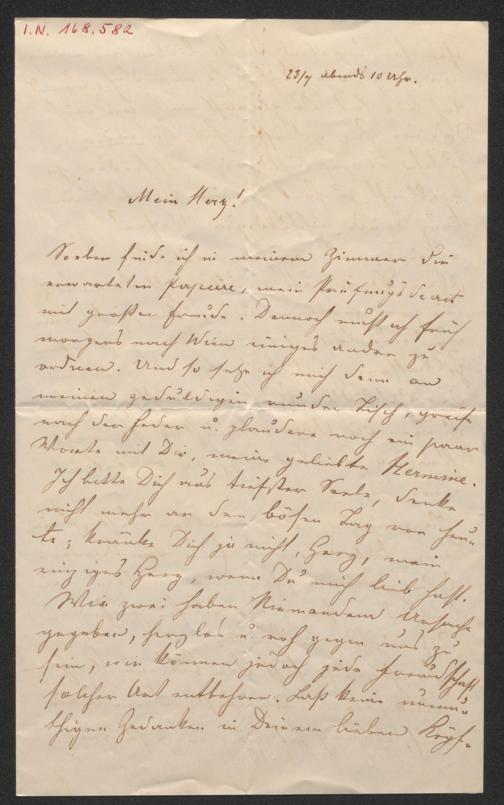 I.N. 168.582
23/7 abends 10 Uhr.
Mein Herz!
Soeben finde ich in meinem Zimmer die
erwarteten Papiere, mein Prüfungsdecret
mit großer Freude. Dennoch muß ich früh
morgens nach Wien einiges andre zu
ordnen. Und so setze ich mich denn an
meinen geduldigen runden Tisch, greife
nach der Feder u. plaudere noch ein paar
Worte mit Dir, meine geliebte Hermine.
Ich bitte Dich aus tiefster Seele, denke
nicht mehr an den bösen Tag von heu-
te; kränke Dich ja nicht, Herz, mein
einziges Herz, wenn Du mich lieb hast.
Wir zwei haben Niemandem Ursache
gegeben, herzlos u. roh gegen uns zu
sein, wir können jedoch jede Freundschaft
solcher Art entbehren. Laß keine unmu-
thigen Gedanken in Deinem lieben Köpf-